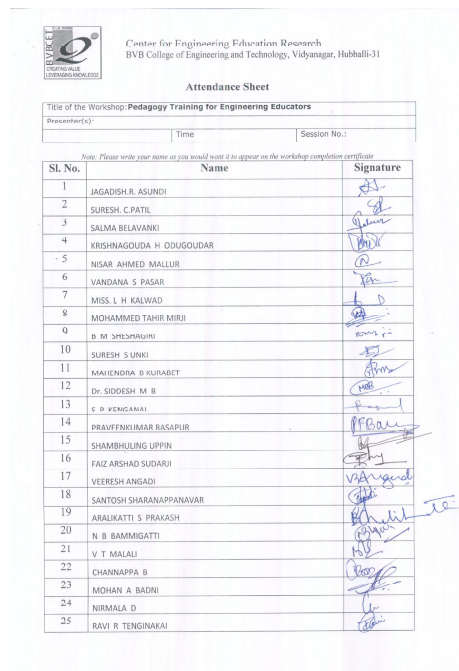 BVBCET
CREATING VALUE
LEVERAGING KNOWLEDGE
Center for Engineering Education Research
BVB College of Engineering and Technology, Vidyanagar, Hubballi-31
Attendance Sheet
Title of the Workshop: Pedagogy Training for Engineering Educators
Presenter(s):
Time Session No.:
Note: Please write your name as you would want it to appear on the workshop completion certificate
Sl. No. Name Signature
1 JAGADISH.R. ASUNDI
2 SURESH. C.PATIL
3 SALMA BELAVANKI
4 KRISHNAGOUDA H ODUGOUDAR
5 NISAR AHMED MALLUR
6 VANDANA S PASAR
7 MISS. L H KALWAD
8 MOHAMMED TAHIR MIRJI
9 B M SHESHAGIRI
10 SURESH S UNKI
11 MAHENDRA D KURABET
12 Dr. SIDDESH M B
13
14 PRAVEENKUMAR BASAPUR
15 SHAMBHULING UPPIN
16 FAIZ ARSHAD SUDARJI
17 VEERESH ANGADI
18 SANTOSH SHARANAPPANAVAR
19 ARALIKATTI S PRAKASH
20 N B BAMMIGATTI
21 V T MALALI
22 CHANNAPPA B
23 MOHAN A BADNI
24 NIRMALA D
25 RAVI R TENGINAKAI